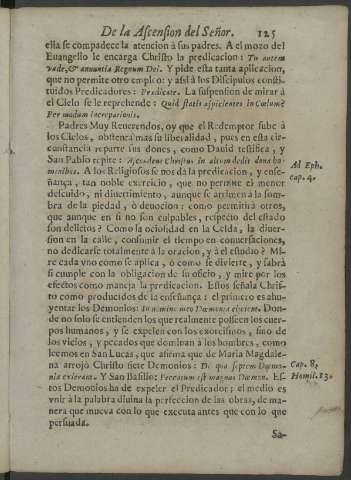 De la Ascension del Señor. 125
ella se compadece la atencion à sus padres. A el mozo del
Euangelio le encarga Christo la predicacion: Tu autem
vade, & annuntia Regnum Dei. Y pide esta tanta aplicacion,
que no permite otro empleo: y assi à los Discipulos consti-
tuidos Predicadores: Prædicate. La suspension de mirar à
el Cielo se le reprehende: Quid statis aspicientes in Cœlum?
Per modum increpationis.
Padres Muy Reuerendos, oy que el Redemptor sube à
los Cielos, obtenga mas su liberalidad, pues en esta cir-
cunstancia reparte sus dones, como Dauid testifica, y
San Pablo repite: Ascendens Christus in altum dedit dona ho-
minibus. A los Religiosos se nos dà la predicacion, y ense-
ñança, tan noble exercicio, que no permite el menor
descuido, ni diuertimiento, aunque se arrimen à la som-
bra de la piedad, ò deuocion: como permitirà otros,
que aunque en si no son culpables, respecto del estado
son defectos? Como la ociosidad en la Celda, la diuer-
sion en la calle, consumir el tiempo en conuersaciones,
no dedicarse totalmente à la oracion, y à el estudio? Mi-
re cada vno como se aplica, ò como se diuierte, y sabrà
si cumple con la obligacion de su oficio, y mire por los
efectos como maneja la predicacion. Estos señala Chris-
to como producidos de la enseñança: el primero es ahu-
yentar los Demonios: In nomine meo Dæmonia eijcient. Don-
de no solo se entienden los que realmente posseen los cuer-
pos humanos, y se expelen con los exorcismos, sino de
los vicios, y pecados que dominan à los hombres, como
leemos en San Lucas, que afirma que de Maria Magdale-
na arrojò Christo siete Demonios: De qua septem Dæmo-
nia exierant. Y San Basilio: Peccatum est magnus Dæmon. Es-
tos Demonios ha de expeler el Predicador; el medio es
vnir à la palabra diuina la perfeccion de las obras, de ma-
nera que mueva con lo que executa antes que con lo que
persuada.
Sa-
Ad Eph.
cap. 4.
Cap. 8.
Homil. 23.